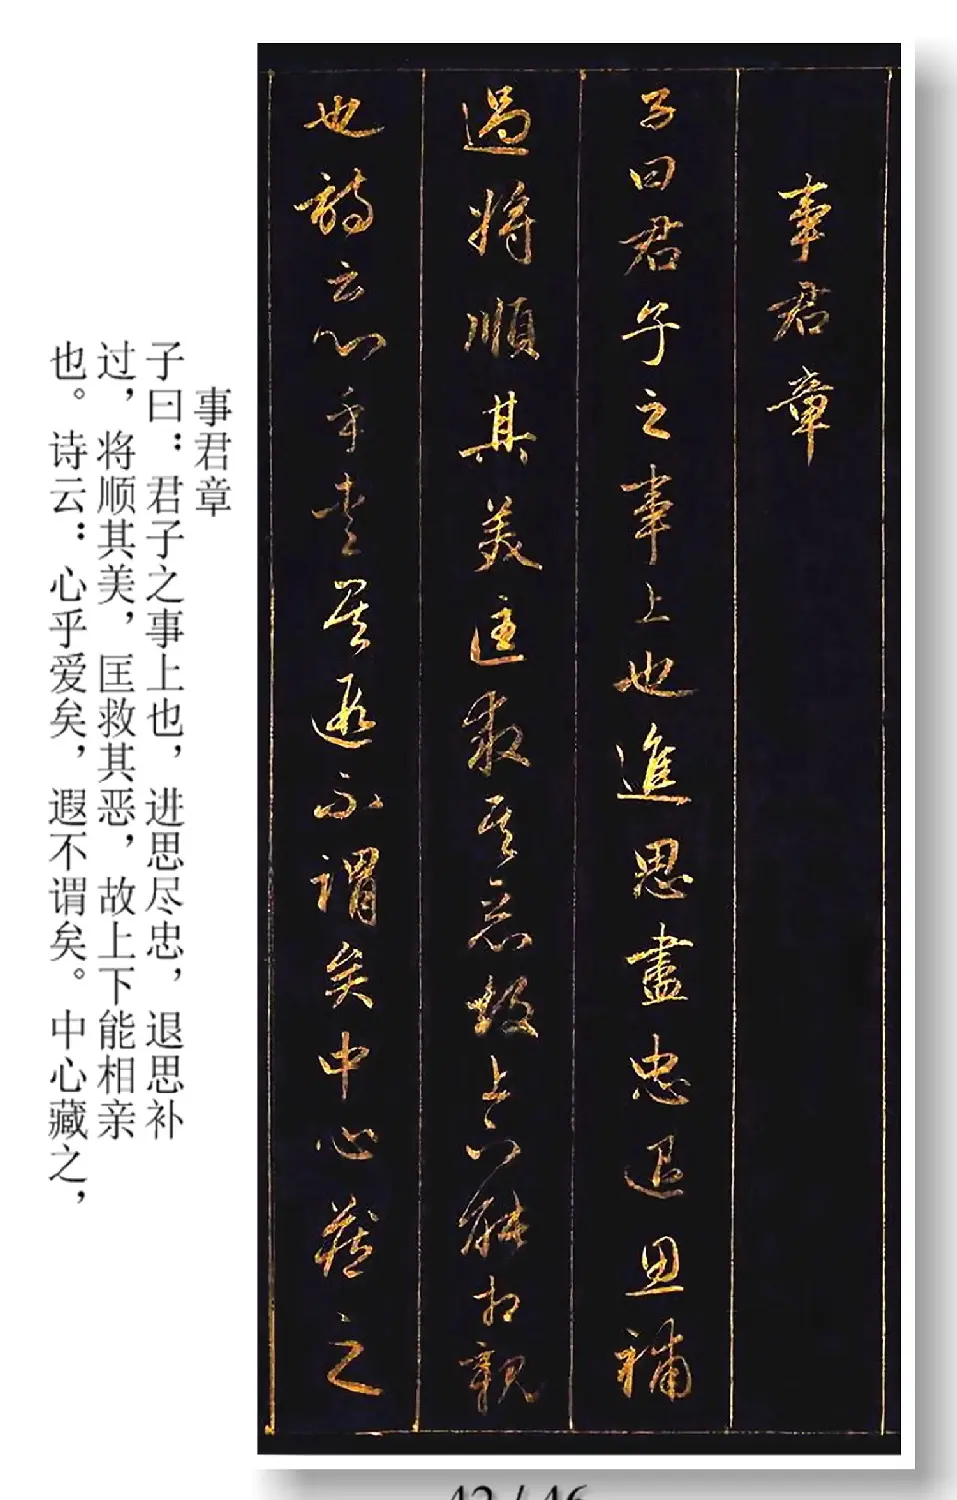 事君章
子曰君子之事上也進思盡忠退思補
過將順其美匡救其惡故上下能相親
也詩云心乎愛矣遐不謂矣中心藏之
事君章
子曰：君子之事上也，进思尽忠，退思补
过，将顺其美，匡救其恶，故上下能相亲
也。诗云：心乎爱矣，遐不谓矣。中心藏之，
42 / 46